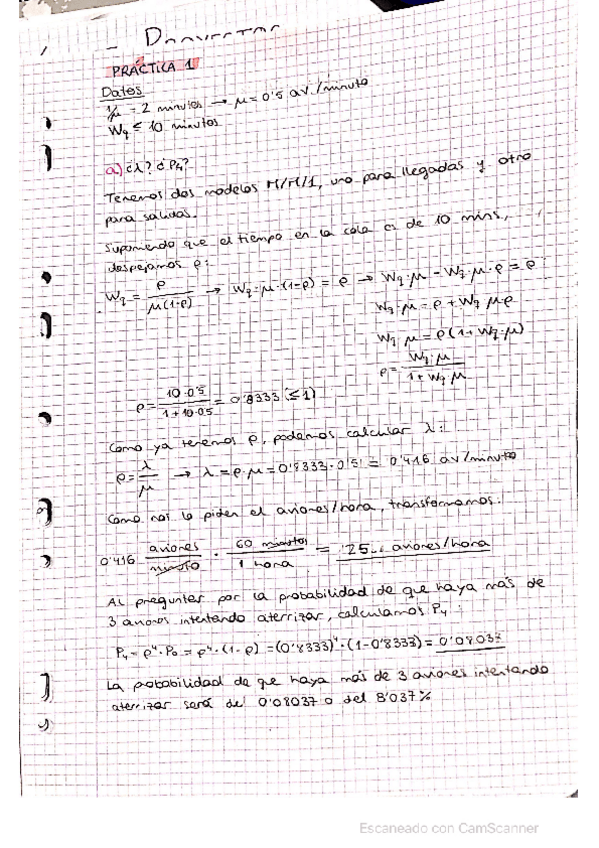 PRÁCTICA 1
Datos
1/μ = 2 minutos → μ = 0'5 av./minuto
Wq ≤ 10 minutos
a) ¿λ? ¿P4?
Tenemos dos modelos M/M/1, uno para llegadas y otro
para salidas.
Suponiendo que el tiempo en la cola es de 10 mins,
despejamos ρ:
Wq = ρ / μ(1-ρ) → Wq·μ·(1-ρ) = ρ → Wq·μ - Wq·μ·ρ = ρ
Wq·μ = ρ + Wq·μ·ρ
Wq·μ = ρ(1 + Wq·μ)
ρ = Wq·μ / 1 + Wq·μ
ρ = 10·0'5 / 1 + 10·0.5 = 0'8333 (≤1)
Como ya tenemos ρ, podemos calcular λ:
ρ = λ/μ → λ = ρ·μ = 0'8333·0'5 = 0'416 av/minuto
Como nos lo piden el aviones/hora, transformamos:
0'416 aviones/minuto · 60 minutos/1 hora = 25 aviones/hora
Al preguntar por la probabilidad de que haya más de
3 aviones intentando aterrizar, calculamos P4:
P4 = ρ⁴·P0 = ρ⁴·(1-ρ) = (0'8333)⁴·(1-0'8333) = 0'08037
La probabilidad de que haya más de 3 aviones intentando
aterrizar será del 0'08037 o del 8'037%
Escaneado con CamScanner